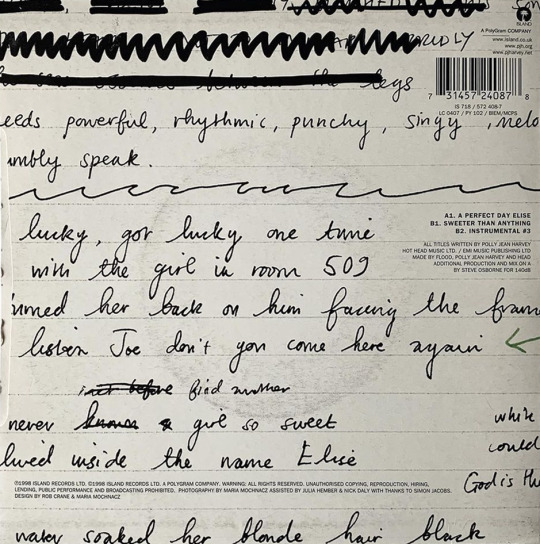 ISLAND
A PolyGram COMPANY
www.island.co.uk
www.pjh.org
www.pjharvey.net
7 31457 24087 8
IS 718 / 572 408-7
LC 0407 / PY 102 / BIEM/MCPS
between the legs
eeds powerful, rhythmic, punchy, singy, melo
umbly speak.
lucky, got lucky one time
with the girl in room 509
urned her back on him facing the fram
listen Joe don't you come here again
find another
never a girl so sweet
lived inside the name Elise
water soaked her blonde hair black
while
could
God is th
A1. A PERFECT DAY ELISE
B1. SWEETER THAN ANYTHING
B2. INSTRUMENTAL #3
ALL TITLES WRITTEN BY POLLY JEAN HARVEY
HOT HEAD MUSIC LTD. / EMI MUSIC PUBLISHING LTD
MADE BY FLOOD, POLLY JEAN HARVEY AND HEAD
ADDITIONAL PRODUCTION AND MIX ON A
BY STEVE OSBORNE FOR 140dB
℗1998 ISLAND RECORDS LTD. ©1998 ISLAND RECORDS LTD. A POLYGRAM COMPANY. WARNING: ALL RIGHTS RESERVED. UNAUTHORISED COPYING, REPRODUCTION, HIRING,
LENDING, PUBLIC PERFORMANCE AND BROADCASTING PROHIBITED. PHOTOGRAPHY BY MARIA MOCHNACZ ASSISTED BY JULIA HEMBER & NICK DALY WITH THANKS TO SIMON JACOBS.
DESIGN BY ROB CRANE & MARIA MOCHNACZ